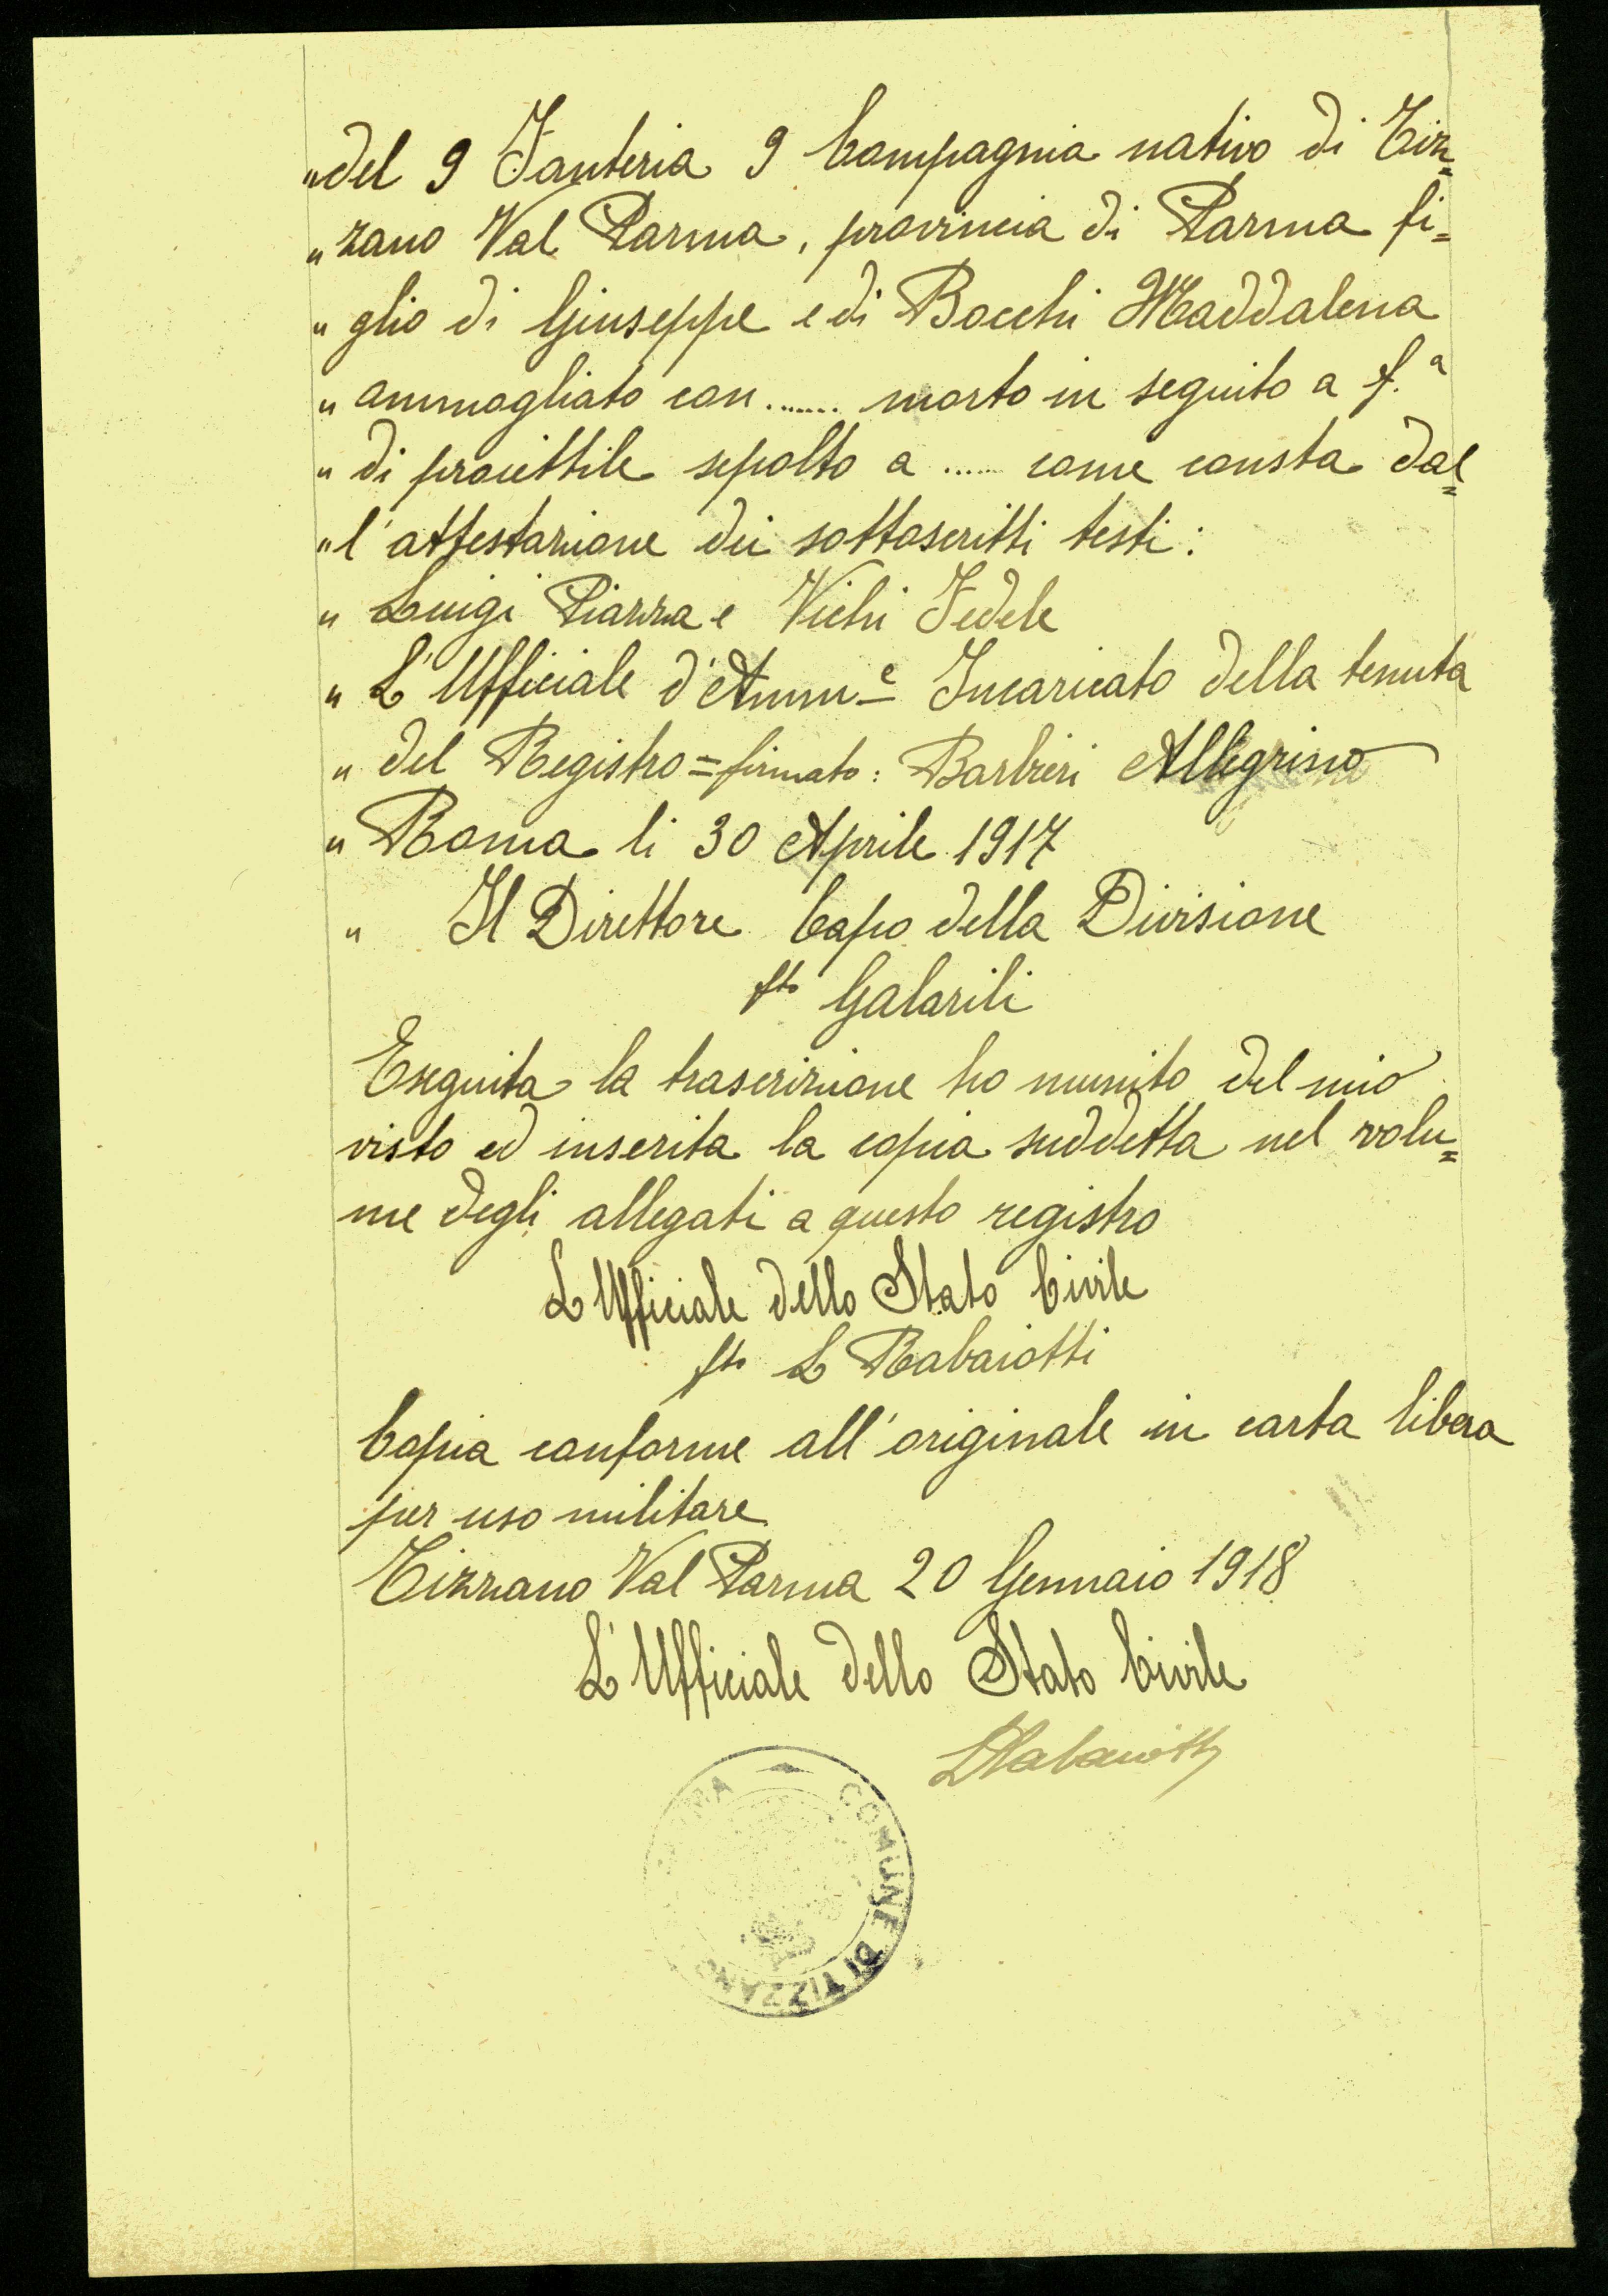 "del 9 Fanteria 9 Compagnia nativo di Tiz=
"zano Val Parma, provincia di Parma fi=
"glio di Giuseppe e di Bocchi Maddalena
"ammogliato con ....... morto in seguito a f.ª
"di proiettile sepolto a ...... come consta dal=
"l'attestazione dei sottoscritti testi:
"Luigi Piazza e Vichi Fedele
"L'Ufficiale d'Amm.e Incaricato della tenuta
"del Registro = firmato: Barbieri Allegrino
"Roma li 30 Aprile 1917
" Il Direttore Capo della Divisione
fto Galarili
Eseguita la trascrizione ho munito del mio
visto ed inserita la copia suddetta nel volu=
me degli allegati a questo registro
L'Ufficiale dello Stato Civile
fto L Rabaiotti
Copia conforme all'originale in carta libera
per uso militare
Tizzano Val Parma 20 Gennaio 1918
L'Ufficiale dello Stato Civile
LRabaiotti
COMUNE DI TIZZANO